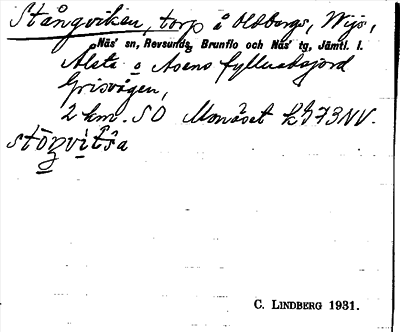 Stångviken, torp å Oldbergs, Wijs,
Näs' sn, Revsunds, Brunflo och Näs' tg, Jämtl. l.
Ålsta o Åsens fyllnadsjord
Grisvågen,
2 km. SO Monäset
stöŋvitša
C. LINDBERG 1931.